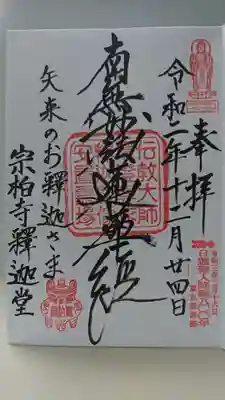 奉拝
令和二年十二月廿四日
南無妙法蓮華経
矢来のお釋迦さま
宗柏寺釋迦堂
伝教大師